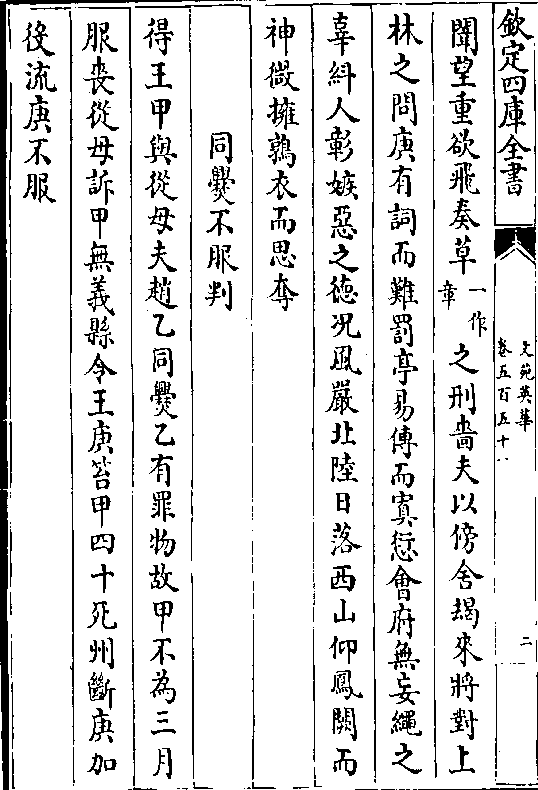 欽定四庫全書
文苑英華
卷五百五十一
二
聞望重欲飛奏草一作章之刑嗇夫以傍舍朅來將對上
林之問庚有詞而難罰亭易傳而寘愆會府無妄繩之
辜糾人彰嫉惡之徳况風嚴北陸日落西山仰鳳闕而
神微擁鶉衣而思奪
同爨不服判
得王甲與從母夫趙乙同爨乙有罪物故甲不為三月
服喪從母訴甲無義縣令王庚笞甲四十死州斷庚加
役流庚不服